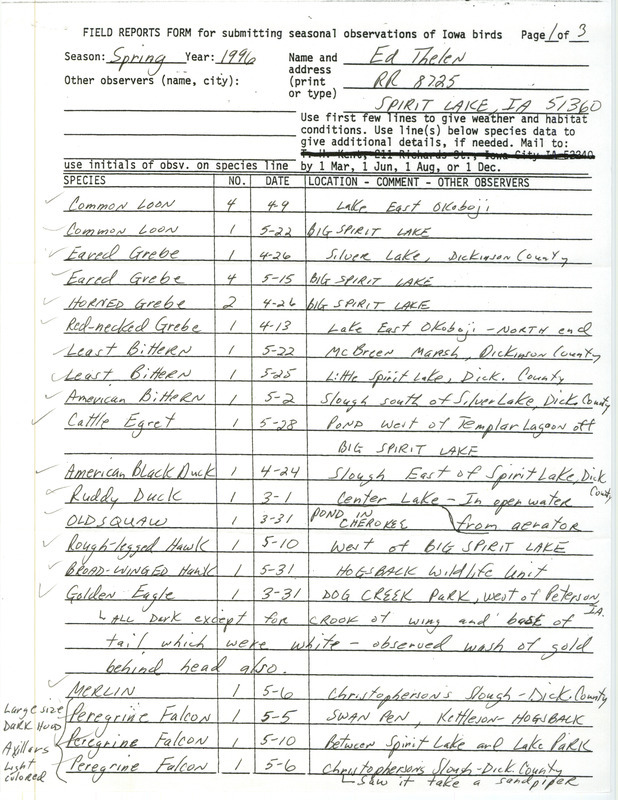 FIELD REPORTS FORM for submitting seasonal observations of Iowa birds Page 1 of 3
Season: Spring Year: 1996 Name and Ed Thelen
address
Other observers (name, city): (print RR 8725
or type)
SPIRIT LAKE, IA 51360
Use first few lines to give weather and habitat
conditions. Use line(s) below species data to
give additional details, if needed. Mail to:
T. H. Kent, 211 Richards St., Iowa City IA 52240
use initials of obsv. on species line by 1 Mar, 1 Jun, 1 Aug, or 1 Dec.
SPECIES NO. DATE LOCATION - COMMENT - OTHER OBSERVERS
✓ Common Loon 4 4-9 Lake East Okoboji
Common Loon 1 5-22 BIG SPIRIT LAKE
✓ Eared Grebe 1 4-26 Silver Lake, Dickinson County
Eared Grebe 4 5-15 BIG SPIRIT LAKE
✓ HORNED Grebe 2 4-26 BIG SPIRIT LAKE
✓ Red-necked Grebe 1 4-13 Lake East Okoboji - NORTH end
✓ Least Bittern 1 5-22 McBreen Marsh, Dickinson County
✓ Least Bittern 1 5-25 Little Spirit Lake, Dick. County
✓ American Bittern 1 5-2 Slough south of Silver Lake, Dick. County
✓ Cattle Egret 1 5-28 POND West of Templar Lagoon off
BIG SPIRIT LAKE
✓ American Black Duck 1 4-24 Slough East of Spirit Lake, Dick County
✓ Ruddy Duck 1 3-1 Center Lake - In open water
from aerator
✓ OLDSQUAW 1 3-31 POND IN CHEROKEE
✓ Rough-legged Hawk 1 5-10 West of BIG SPIRIT LAKE
✓ BROAD-WINGED HAWK 1 5-31 HOGSBACK Wildlife Unit
✓ Golden Eagle 1 3-31 DOG CREEK PARK, west of Peterson, IA.
ALL DARK except for crook of wing and base of
tail which were white - observed wash of gold
behind head also.
✓ MERLIN 1 5-6 Christopherson's Slough - Dick. County
Peregrine Falcon 1 5-5 SWAN PEN, Kettleson-HOGSBACK
Peregrine Falcon 1 5-10 Between Spirit Lake and Lake PARK
Peregrine Falcon 1 5-6 Christophersons Slough - Dick. County
Saw it take a sandpiper
Large size
DARK HOOD
Axillars
Light
colored